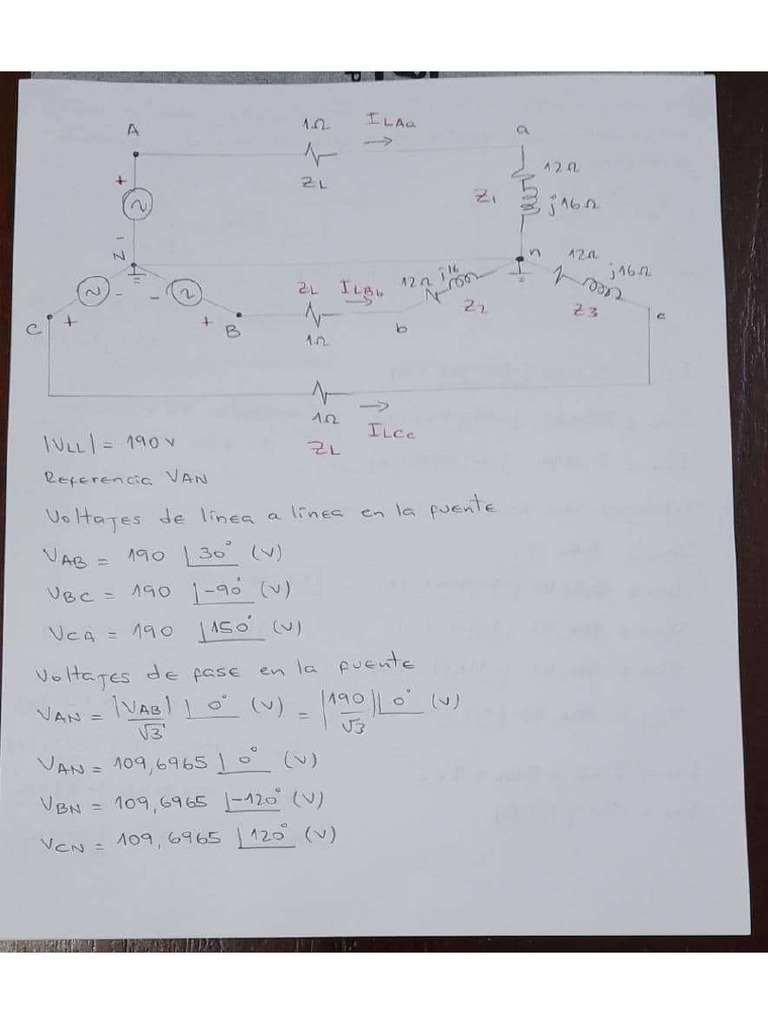 A
1Ω
I LAa
a
+
ZL
12Ω
Z1
j16Ω
-
N
n
12Ω
j16Ω
-
-
ZL
I LBb
12Ω
j16
Z2
Z3
C
+
+
B
1Ω
b
c
1Ω
ZL
I LCc
|VLL| = 190 V
Referencia VAN
Voltajes de línea a línea en la fuente
VAB = 190 ⌊30° (V)
VBC = 190 ⌊-90° (V)
VCA = 190 ⌊150° (V)
Voltajes de fase en la fuente
VAN = |VAB|/√3 ⌊0° (V) = |190/√3| ⌊0° (V)
VAN = 109,6965 ⌊0° (V)
VBN = 109,6965 ⌊-120° (V)
VCN = 109,6965 ⌊120° (V)